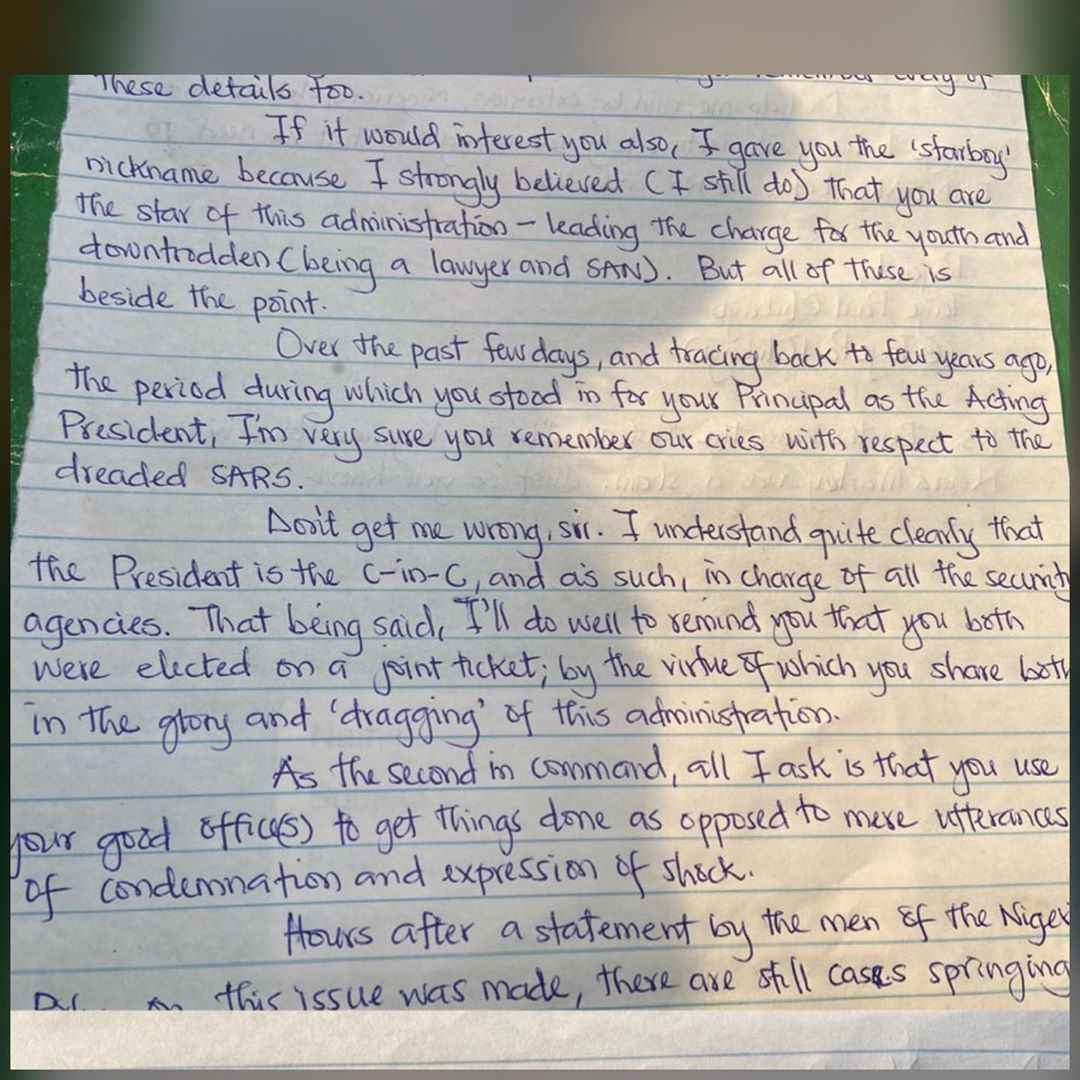 These details too.
If it would interest you also, I gave you the 'starboy'
nickname because I strongly believed (I still do) that you are
the star of this administration - leading the charge for the youth and
downtrodden (being a lawyer and SAN). But all of these is
beside the point.
Over the past few days, and tracing back to few years ago,
the period during which you stood in for your Principal as the Acting
President, I'm very sure you remember our cries with respect to the
dreaded SARS.
Don't get me wrong, sir. I understand quite clearly that
the President is the C-in-C, and as such, in charge of all the security
agencies. That being said, I'll do well to remind you that you both
were elected on a joint ticket; by the virtue of which you share both
in the glory and 'dragging' of this administration.
As the second in command, all I ask is that you use
your good office(s) to get things done as opposed to mere utterances
of condemnation and expression of shock.
Hours after a statement by the men of the Niger
this issue was made, there are still cases springing